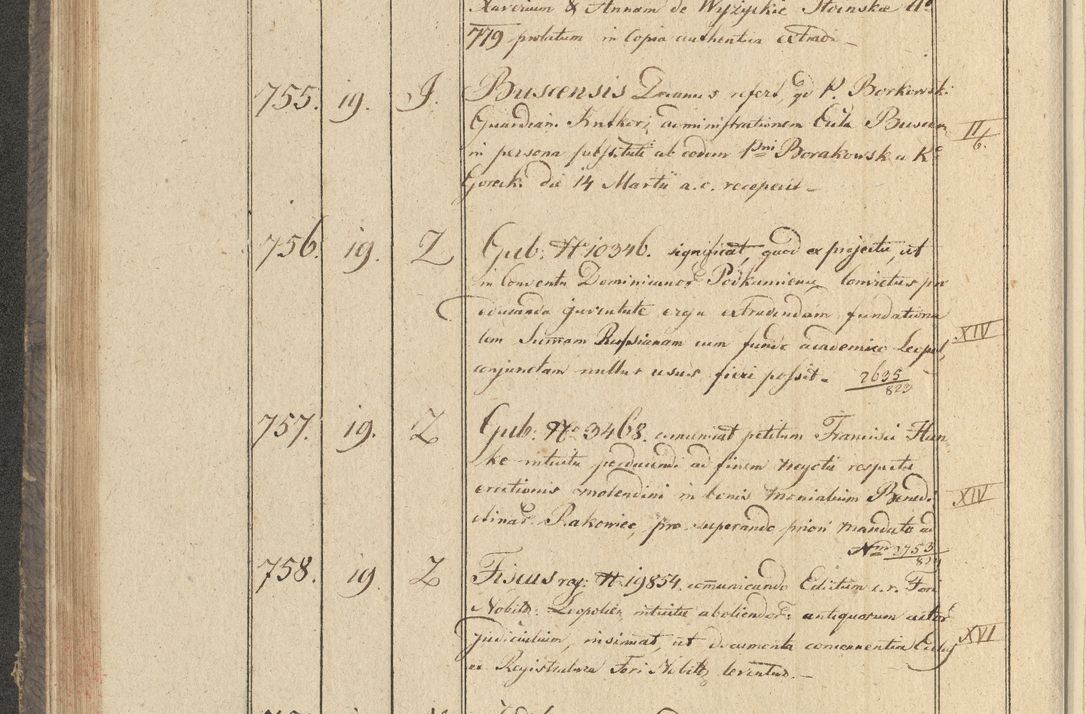 Xaverium & Annam de Wyzyckie Stoinskie No
779 prolatum in Copia authentica extradi –
755. 19. J. Buscensis Decanus refert, qd P. Borkowski
Guardian Kutkorz administrationem Ecclae Buscen II/6.
in persona substituti ab eodem Pmi Borakowsk a Ko
Gorecki die 14 Martii a. c. receperit –
756. 19. Z Gub: N 10346. significat, quod ex projectu, ut
in Conventu Dominicanor Podkamienia, Convictus pro
educanda juventute erga extradendam fundationa
lem Summam Russianam cum fundo academico Leopol, XIV
conjunctam nullus usus fieri possit – 2635/823
757. 19. Z Gub: No 3468. comunicat petitum Francisci Han
ke intuitu perducendi ad finem negotii respectu
erectionis molendini in bonis Monialium Benedi XIV
ctinar Rakoniec, pro superando priori mandato ad
Num 3753/829
758. 19 Z Fiscus reg: N 19854 comunicando Edictum c. r. Fori
Nobil: Leopolien intuitu aboliendor antiquorum actor
Judicialium, insinuat, ut documenta concernentia XVI
ex Registratura Fori Nobil leventur. –